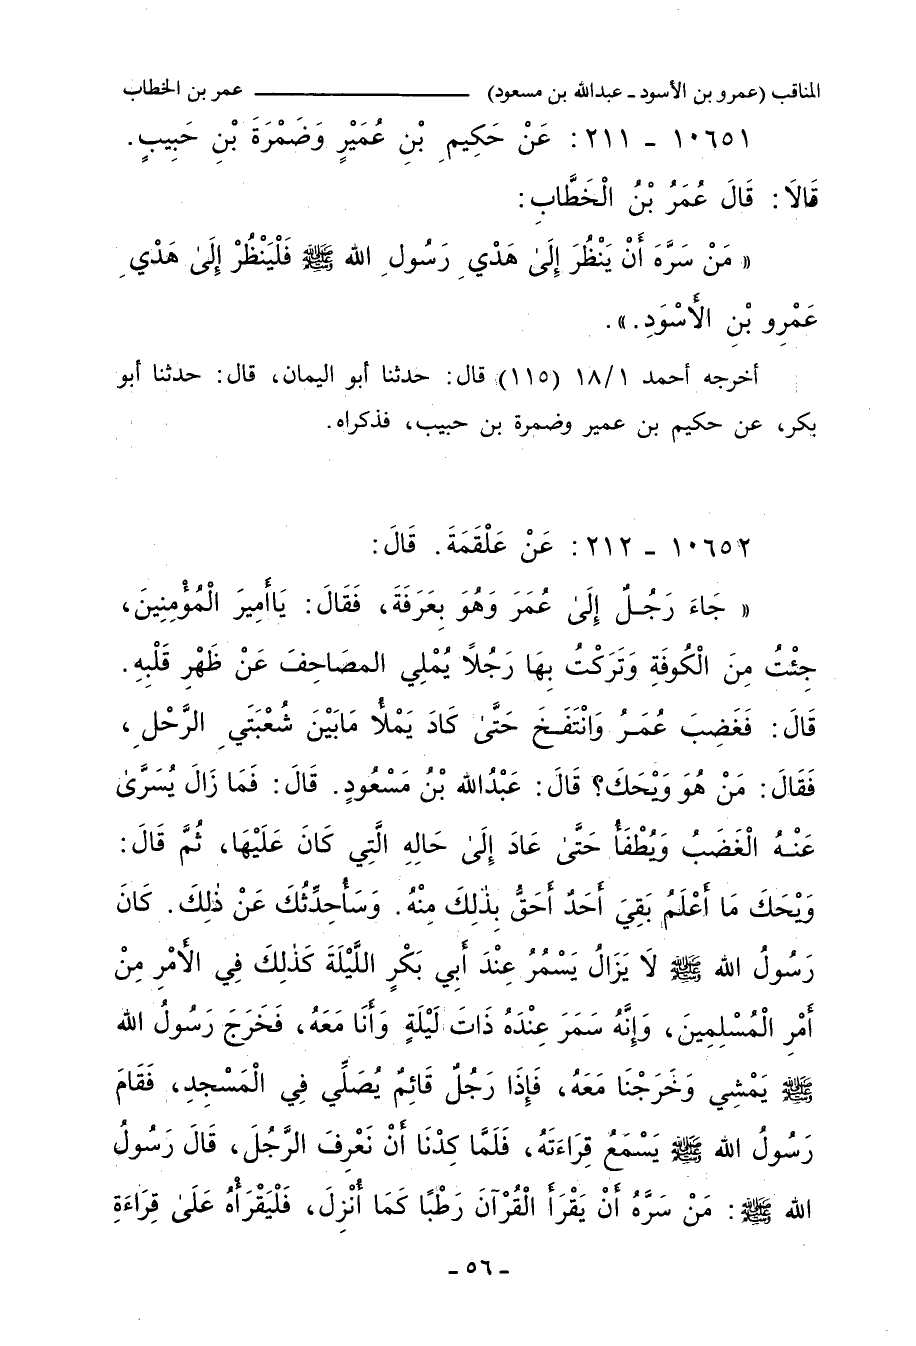 المناقب (عمرو بن الأسود - عبدالله بن مسعود) ــــــــــــــــ عمر بن الخطاب
١٠٦٥١ - ٢١١ : عَنْ حَكِيمِ بْنِ عُمَيْرٍ وَضَمْرَةَ بْنِ حَبِيبٍ.
قَالَا: قَالَ عُمَرُ بْنُ الْخَطَّابِ:
« مَنْ سَرَّهُ أَنْ يَنْظُرَ إِلَىٰ هَدْيِ رَسُولِ الله ﷺ فَلْيَنْظُرْ إِلَىٰ هَدْيِ
عَمْرِو بْنِ الأَسْوَدِ.».
أخرجه أحمد ١/١٨ (١١٥) قال: حدثنا أبو اليمان، قال: حدثنا أبو
بكر، عن حكيم بن عمير وضمرة بن حبيب، فذكراه.
١٠٦٥٢ - ٢١٢ : عَنْ عَلْقَمَةَ. قَالَ:
« جَاءَ رَجُلٌ إِلَىٰ عُمَرَ وَهُوَ بِعَرَفَةَ، فَقَالَ: يَاأَمِيرَ الْمُؤْمِنِينَ،
جِئْتُ مِنَ الْكُوفَةِ وَتَرَكْتُ بِهَا رَجُلًا يُمْلِي المصَاحِفَ عَنْ ظَهْرِ قَلْبِهِ.
قَالَ: فَغَضِبَ عُمَرُ وَانْتَفَخَ حَتَّىٰ كَادَ يَمْلأُ مَابَيْنَ شُعْبَتَيِ الرَّحْلِ،
فَقَالَ: مَنْ هُوَ وَيْحَكَ؟ قَالَ: عَبْدُالله بْنُ مَسْعُودٍ. قَالَ: فَمَا زَالَ يُسَرَّىٰ
عَنْهُ الْغَضَبُ وَيُطْفَأُ حَتَّىٰ عَادَ إِلَىٰ حَالِهِ الَّتِي كَانَ عَلَيْهَا، ثُمَّ قَالَ:
وَيْحَكَ مَا أَعْلَمُ بَقِيَ أَحَدٌ أَحَقُّ بِذٰلِكَ مِنْهُ. وَسَأُحَدِّثُكَ عَنْ ذٰلِكَ. كَانَ
رَسُولُ الله ﷺ لَا يَزَالُ يَسْمُرُ عِنْدَ أَبِي بَكْرٍ اللَّيْلَةَ كَذٰلِكَ فِي الأَمْرِ مِنْ
أَمْرِ الْمُسْلِمِينَ، وَإِنَّهُ سَمَرَ عِنْدَهُ ذَاتَ لَيْلَةٍ وَأَنَا مَعَهُ، فَخَرَجَ رَسُولُ الله
ﷺ يَمْشِي وَخَرَجْنَا مَعَهُ، فَإِذَا رَجُلٌ قَائِمٌ يُصَلِّي فِي الْمَسْجِدِ، فَقَامَ
رَسُولُ الله ﷺ يَسْمَعُ قِرَاءَتَهُ، فَلَمَّا كِدْنَا أَنْ نَعْرِفَ الرَّجُلَ، قَالَ رَسُولُ
الله ﷺ: مَنْ سَرَّهُ أَنْ يَقْرَأَ الْقُرْآنَ رَطْبًا كَمَا أُنْزِلَ، فَلْيَقْرَأْهُ عَلَىٰ قِرَاءَةِ
- ٥٦ -